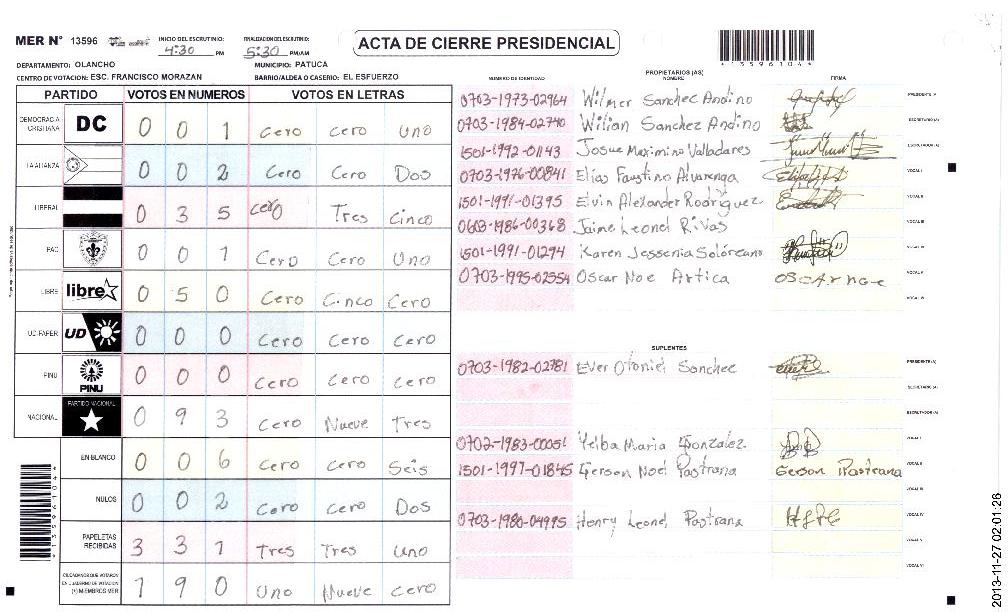 MER N° 13596
INICIO DEL ESCRUTINIO: 4:30 PM
FINALIZACION DEL ESCRUTINIO: 5:30 PM/AM
ACTA DE CIERRE PRESIDENCIAL
*13596104*
DEPARTAMENTO: OLANCHO MUNICIPIO: PATUCA
CENTRO DE VOTACION: ESC. FRANCISCO MORAZAN BARRIO/ALDEA O CASERIO: EL ESFUERZO
PARTIDO VOTOS EN NUMEROS VOTOS EN LETRAS
DEMOCRACIA CRISTIANA DC 0 0 1 Cero Cero Uno
LA ALIANZA 0 0 2 Cero Cero Dos
LIBERAL 0 3 5 Cero Tres Cinco
PAC 0 0 1 Cero Cero Uno
LIBRE libre 0 5 0 Cero Cinco Cero
UD-FAPER UD 0 0 0 Cero Cero Cero
PINU PINU 0 0 0 Cero Cero Cero
NACIONAL PARTIDO NACIONAL 0 9 3 Cero Nueve Tres
EN BLANCO 0 0 6 Cero Cero Seis
NULOS 0 0 2 Cero Cero Dos
PAPELETAS RECIBIDAS 3 3 1 Tres Tres Uno
CIUDADANOS QUE VOTARON EN CUADERNO DE VOTACION (+) MIEMBROS MER 1 9 0 Uno Nueve Cero
*13596104*
PROPIETARIOS (AS)
NUMERO DE IDENTIDAD NOMBRE FIRMA
0703-1973-02964 Wilmer Sanchec Andino PRESIDENTE (A)
0703-1984-02740 Wilian Sanchez Andino SECRETARIO (A)
1501-1992-01143 Josue Maximino Valladares ESCRUTADOR (A)
0703-1976-00841 Elias Faustino Alvarenga VOCAL I
1501-1991-01395 Elvin Alexander Rodriguez VOCAL II
0603-1986-00368 Jaime Leonel Rivas VOCAL III
1501-1991-01294 Karen Jessenia Solórcano VOCAL IV
0703-1995-02554 Oscar Noe Artica OSCAr noe VOCAL V
VOCAL VI
SUPLENTES
0703-1982-02781 Ever Otoniel Sanchec PRESIDENTE (A)
SECRETARIO (A)
ESCRUTADOR (A)
0702-1983-00051 Yelba Maria Gonzalez VOCAL I
1501-1997-01845 Gerson Noel Pastrana Gerson Pastrana VOCAL II
VOCAL III
0703-1980-04995 Henry Leonel Pastrana HLPC VOCAL IV
VOCAL V
VOCAL VI
2013-11-27 02:01:26